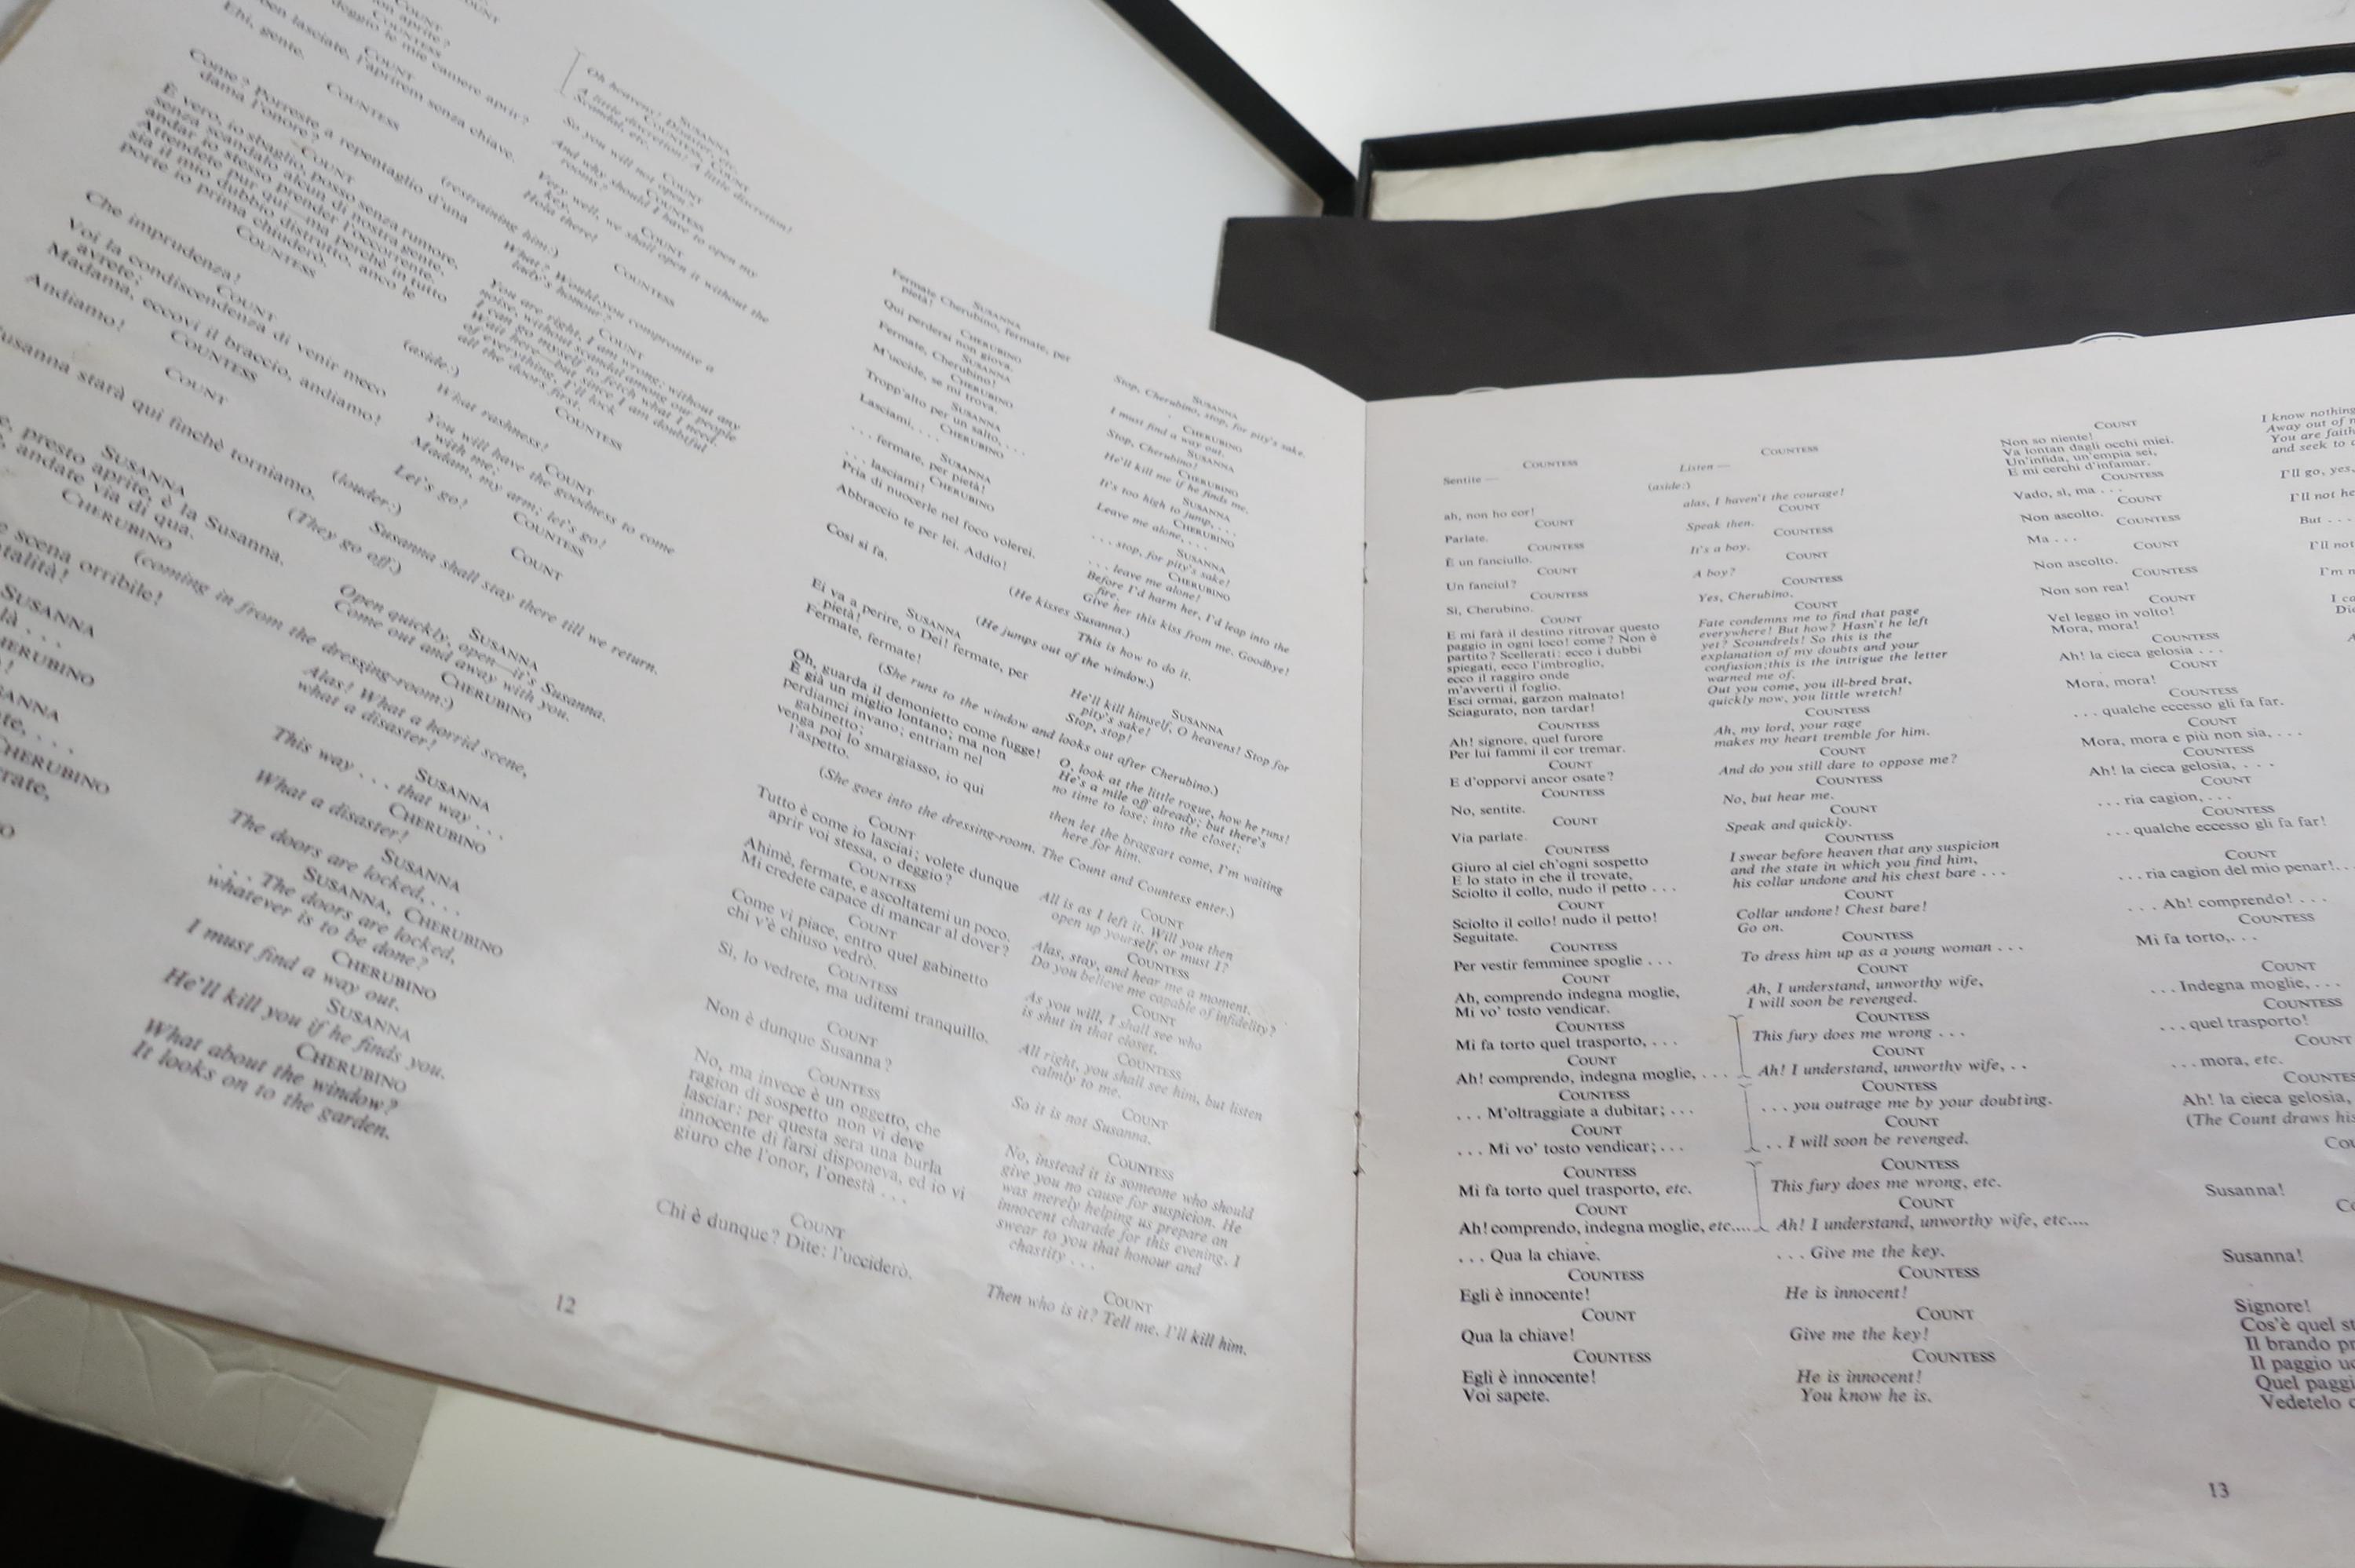 COUNT
on aprite?
COUNTESS
deggio le mie camere aprir?
COUNT
ben lasciate, l'aprirem senza chiave.
Ehi, gente.
COUNTESS
Come? Porreste a repentaglio d'una
dama l'onore?
COUNT
È vero, io sbaglio, posso senza rumore,
senza scandalo alcun di nostra gente,
andar io stesso prender l'occorrente.
Attendete pur qui—ma perchè in tutto
sia il mio dubbio distrutto, anco le
porte io prima chiuderò.
COUNTESS
Che imprudenza!
COUNT
Voi la condiscendenza di venir meco
avrete;
Madama, eccovi il braccio, andiamo!
COUNTESS
Andiamo!
COUNT
Susanna starà qui finchè torniamo.
SUSANNA
presto aprite, è la Susanna.
andate via di qua.
CHERUBINO
scena orribile!
SUSANNA
là . . .
CHERUBINO
COUNT
SUSANNA
Oh heavens! Disaster, etc.
COUNTESS, COUNT
A little discretion! A little discretion!
Scandal, etc.
COUNT
So you will not open?
COUNTESS
And why should I have to open my
rooms?
COUNT
Very well, we shall open it without the
key.
Hola there!
COUNTESS
(restraining him:)
What? Would you compromise a
lady's honour?
COUNT
You are right, I am wrong; without any
noise, without scandal among our people
I can go myself to fetch what I need.
Wait here—but since I am doubtful
of everything, I'll lock
all the doors first.
COUNTESS
(aside:)
What rashness!
COUNT
You will have the goodness to come
with me;
Madam, my arm; let's go!
COUNTESS
Let's go!
COUNT
(louder:)
Susanna shall stay there till we return.
(They go off.)
SUSANNA
Open quickly, open—it's Susanna.
Come out and away with you.
CHERUBINO
(coming in from the dressing-room:)
Alas! What a horrid scene,
what a disaster!
SUSANNA
This way . . . that way . . .
CHERUBINO
What a disaster!
SUSANNA
The doors are locked, . . .
SUSANNA, CHERUBINO
. . . The doors are locked,
whatever is to be done?
CHERUBINO
I must find a way out.
SUSANNA
He'll kill you if he finds you.
CHERUBINO
What about the window?
It looks on to the garden.
SUSANNA
Fermate Cherubino, fermate, per
pietà!
CHERUBINO
Qui perdersi non giova.
SUSANNA
Fermate, Cherubino!
CHERUBINO
M'uccide, se mi trova.
SUSANNA
Tropp'alto per un salto, . . .
CHERUBINO
Lasciami, . . .
SUSANNA
. . . fermate, per pietà!
CHERUBINO
. . . lasciami!
Pria di nuocerle nel foco volerei.
Abbraccio te per lei. Addio!
Così si fa.
SUSANNA
Ei va a perire, o Dei! fermate, per
pietà!
Fermate, fermate!
Oh, guarda il demonietto come fugge!
È già un miglio lontano; ma non
perdiamci invano; entriam nel
gabinetto;
venga poi lo smargiasso, io qui
l'aspetto.
COUNT
Tutto è come io lasciai; volete dunque
aprir voi stessa, o deggio?
COUNTESS
Ahimè, fermate, e ascoltatemi un poco.
Mi credete capace di mancar al dover?
COUNT
Come vi piace, entro quel gabinetto
chi v'è chiuso vedrò.
COUNTESS
Sì, lo vedrete, ma uditemi tranquillo.
COUNT
Non è dunque Susanna?
COUNTESS
No, ma invece è un oggetto, che
ragion di sospetto non vi deve
lasciar; per questa sera una burla
innocente di farsi disponeva, ed io vi
giuro che l'onor, l'onestà . . .
COUNT
Chi è dunque? Dite: l'ucciderò.
SUSANNA
Stop, Cherubino, stop, for pity's sake.
CHERUBINO
I must find a way out.
SUSANNA
Stop, Cherubino!
CHERUBINO
He'll kill me if he finds me.
SUSANNA
It's too high to jump, . . .
CHERUBINO
Leave me alone, . . .
SUSANNA
. . . stop, for pity's sake!
CHERUBINO
. . . leave me alone!
Before I'd harm her, I'd leap into the
fire.
Give her this kiss from me. Goodbye!
(He kisses Susanna.)
This is how to do it.
(He jumps out of the window.)
SUSANNA
He'll kill himself, O heavens! Stop for
pity's sake!
Stop, stop!
(She runs to the window and looks out after Cherubino.)
O, look at the little rogue, how he runs!
He's a mile off already; but there's
no time to lose; into the closet;
then let the braggart come, I'm waiting
here for him.
(She goes into the dressing-room. The Count and Countess enter.)
COUNT
All is as I left it. Will you then
open up yourself, or must I?
COUNTESS
Alas, stay, and hear me a moment.
Do you believe me capable of infidelity?
COUNT
As you will, I shall see who
is shut in that closet.
COUNTESS
All right, you shall see him, but listen
calmly to me.
COUNT
So it is not Susanna.
COUNTESS
No, instead it is someone who should
give you no cause for suspicion. He
was merely helping us prepare an
innocent charade for this evening. I
swear to you that honour and
chastity . . .
COUNT
Then who is it? Tell me. I'll kill him.
12
COUNTESS
Sentite —
ah, non ho cor!
COUNT
Parlate.
COUNTESS
È un fanciullo.
COUNT
Un fanciul?
COUNTESS
Sì, Cherubino.
COUNT
E mi farà il destino ritrovar questo
paggio in ogni loco! come? Non è
partito? Scellerati: ecco i dubbi
spiegati, ecco l'imbroglio,
ecco il raggiro onde
m'avvertì il foglio.
Esci ormai, garzon malnato!
Sciagurato, non tardar!
COUNTESS
Ah! signore, quel furore
Per lui fammi il cor tremar.
COUNT
E d'opporvi ancor osate?
COUNTESS
No, sentite.
COUNT
Via parlate.
COUNTESS
Giuro al ciel ch'ogni sospetto
E lo stato in che il trovate,
Sciolto il collo, nudo il petto . . .
COUNT
Sciolto il collo! nudo il petto!
Seguitate.
COUNTESS
Per vestir femminee spoglie . . .
COUNT
Ah, comprendo indegna moglie,
Mi vo' tosto vendicar.
COUNTESS
Mi fa torto quel trasporto, . . .
COUNT
Ah! comprendo, indegna moglie, . . .
COUNTESS
. . . M'oltraggiate a dubitar; . . .
COUNT
. . . Mi vo' tosto vendicar; . . .
COUNTESS
Mi fa torto quel trasporto, etc.
COUNT
Ah! comprendo, indegna moglie, etc....
. . . Qua la chiave.
COUNTESS
Egli è innocente!
COUNT
Qua la chiave!
COUNTESS
Egli è innocente!
Voi sapete.
COUNTESS
Listen —
(aside:)
alas, I haven't the courage!
COUNT
Speak then.
COUNTESS
It's a boy.
COUNT
A boy?
COUNTESS
Yes, Cherubino.
COUNT
Fate condemns me to find that page
everywhere! But how? Hasn't he left
yet? Scoundrels! So this is the
explanation of my doubts and your
confusion; this is the intrigue the letter
warned me of.
Out you come, you ill-bred brat,
quickly now, you little wretch!
COUNTESS
Ah, my lord, your rage
makes my heart tremble for him.
COUNT
And do you still dare to oppose me?
COUNTESS
No, but hear me.
COUNT
Speak and quickly.
COUNTESS
I swear before heaven that any suspicion
and the state in which you find him,
his collar undone and his chest bare . . .
COUNT
Collar undone! Chest bare!
Go on.
COUNTESS
To dress him up as a young woman . . .
COUNT
Ah, I understand, unworthy wife,
I will soon be revenged.
COUNTESS
This fury does me wrong . . .
COUNT
Ah! I understand, unworthy wife, . .
COUNTESS
. . . you outrage me by your doubting.
COUNT
. . I will soon be revenged.
COUNTESS
This fury does me wrong, etc.
COUNT
Ah! I understand, unworthy wife, etc....
. . . Give me the key.
COUNTESS
He is innocent!
COUNT
Give me the key!
COUNTESS
He is innocent!
You know he is.
COUNT
Non so niente!
Va lontan dagli occhi miei.
Un'infida, un'empia sei,
E mi cerchi d'infamar.
COUNTESS
Vado, sì, ma . . .
COUNT
Non ascolto.
COUNTESS
Ma . . .
COUNT
Non ascolto.
COUNTESS
Non son rea!
COUNT
Vel leggo in volto!
Mora, mora!
COUNTESS
Ah! la cieca gelosia . . .
COUNT
Mora, mora!
COUNTESS
. . . qualche eccesso gli fa far.
COUNT
Mora, mora e più non sia, . . .
COUNTESS
Ah! la cieca gelosia, . . .
COUNT
. . . ria cagion, . . .
COUNTESS
. . . qualche eccesso gli fa far!
COUNT
. . . ria cagion del mio penar! . .
. . . Ah! comprendo! . . .
COUNTESS
Mi fa torto, . . .
COUNT
. . . Indegna moglie, . . .
COUNTESS
. . . quel trasporto!
COUNT
. . . mora, etc.
COUNTESS
Ah! la cieca gelosia,
(The Count draws his
Susanna!
Susanna!
Signore!
Cos'è quel
Il brando
Il paggio
Quel
Vedetelo
I know nothing
Away out of
You are
and seek to
I'll go, yes,
I'll not
But . . .
I'll not
13